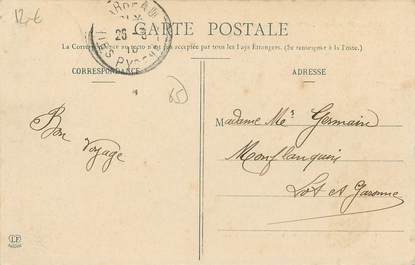 12€
CARTE POSTALE
La Correspondance au recto n'est pas acceptée par tous les Pays Étrangers. (Se renseigner à la Poste).
CORRESPONDANCE
ADRESSE
26-3
65
Madame Mce Germain
Bon
Voyage
Monflanquin
Lot et Garonne